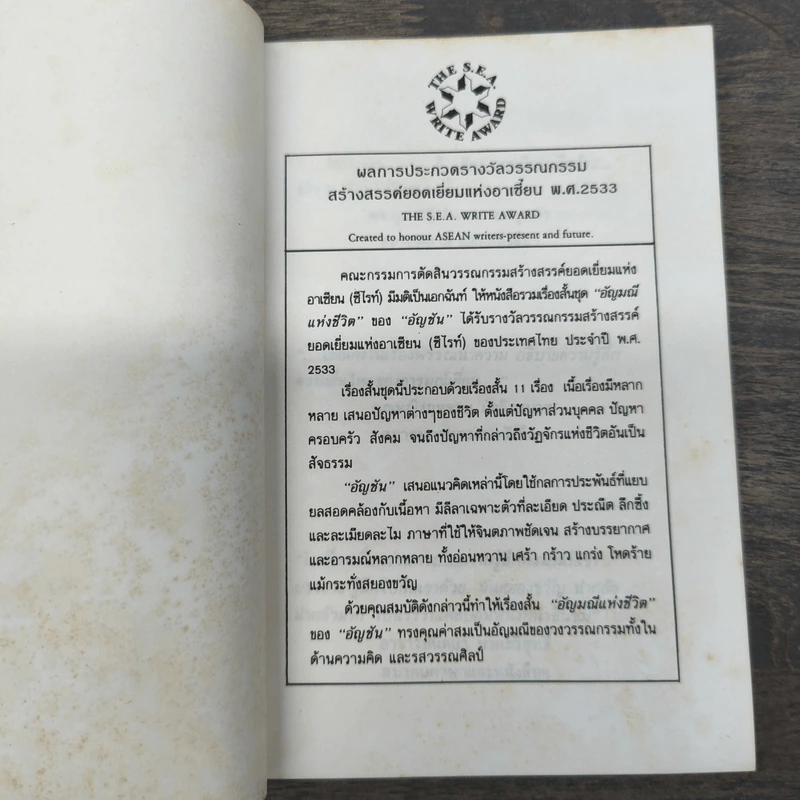 THE S.E.A.
WRITE AWARD
ผลการประกวดรางวัลวรรณกรรม
สร้างสรรค์ยอดเยี่ยมแห่งอาเซี่ยน พ.ศ.2533
THE S.E.A. WRITE AWARD
Created to honour ASEAN writers-present and future.
คณะกรรมการตัดสินวรรณกรรมสร้างสรรค์ยอดเยี่ยมแห่ง
อาเซียน (ซีไรท์) มีมติเป็นเอกฉันท์ ให้หนังสือรวมเรื่องสั้นชุด “อัญมณี
แห่งชีวิต” ของ “อัญชัน” ได้รับรางวัลวรรณกรรมสร้างสรรค์
ยอดเยี่ยมแห่งอาเซียน (ซีไรท์) ของประเทศไทย ประจำปี พ.ศ.
2533
เรื่องสั้นชุดนี้ประกอบด้วยเรื่องสั้น 11 เรื่อง เนื้อเรื่องมีหลาก
หลาย เสนอปัญหาต่างๆของชีวิต ตั้งแต่ปัญหาส่วนบุคคล ปัญหา
ครอบครัว สังคม จนถึงปัญหาที่กล่าวถึงวัฏจักรแห่งชีวิตอันเป็น
สัจธรรม
“อัญชัน” เสนอแนวคิดเหล่านี้โดยใช้กลการประพันธ์ที่แยบ
ยลสอดคล้องกับเนื้อหา มีลีลาเฉพาะตัวที่ละเอียด ประณีต ลึกซึ้ง
และละเมียดละไม ภาษาที่ใช้ให้จินตภาพชัดเจน สร้างบรรยากาศ
และอารมณ์หลากหลาย ทั้งอ่อนหวาน เศร้า กร้าว แกร่ง โหดร้าย
แม้กระทั่งสยองขวัญ
ด้วยคุณสมบัติดังกล่าวนี้ทำให้เรื่องสั้น “อัญมณีแห่งชีวิต”
ของ “อัญชัน” ทรงคุณค่าสมเป็นอัญมณีของวงวรรณกรรมทั้งใน
ด้านความคิด และรสวรรณศิลป์